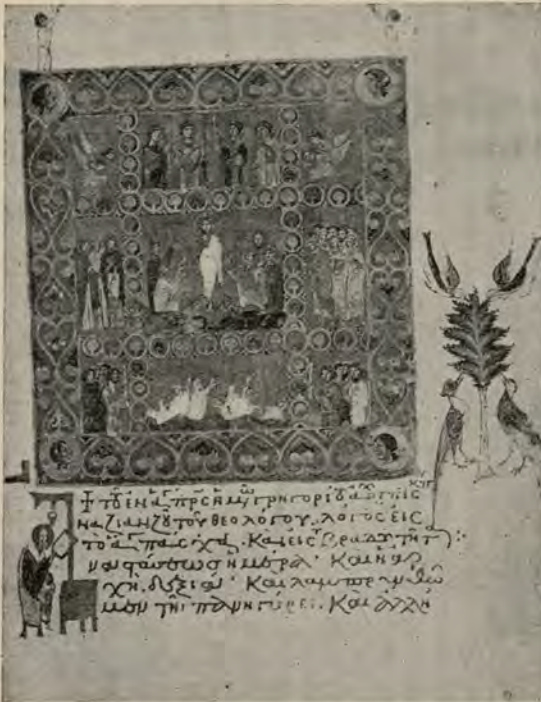 τοῦ ἐν ἁγ πρς ἡμ γρηγορίου
ναζιανζοῦ τοῦ θεολόγου, λόγος εἰς
τὸ ἁ πάσχα. Καὶ εἰς βραδυτητ :
ναστάσεως ἡμέρα· Καὶ ἡ ἀρ
χὴ δεξιά· Καὶ λαμπρυνθῶ
μεν τῇ πανηγύρει· Καὶ ἀλλή